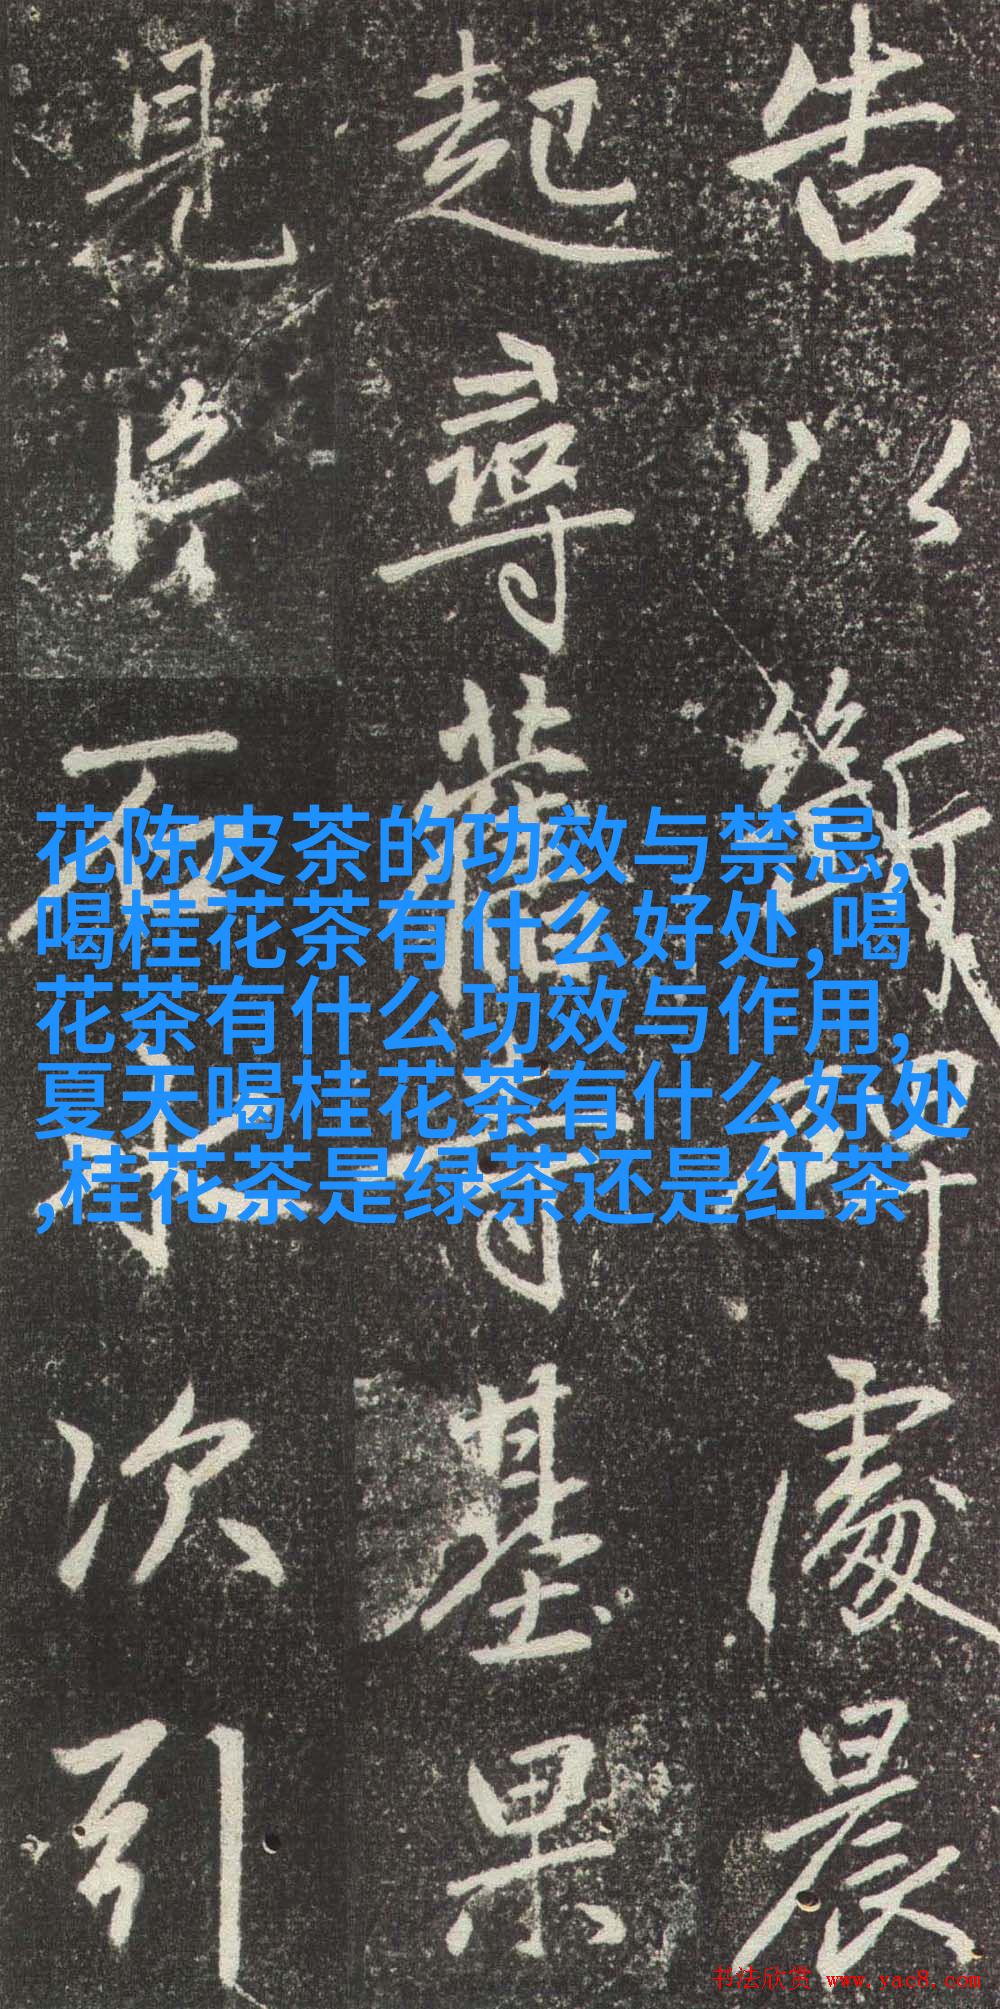 告以處晨
起尋舊基果
見片石次引
花陈皮茶的功效与禁忌,
喝桂花茶有什么好处,喝
花茶有什么功效与作用,
夏天喝桂花茶有什么好处
,桂花茶是绿茶还是红茶
书法欣赏 www.yac8.com